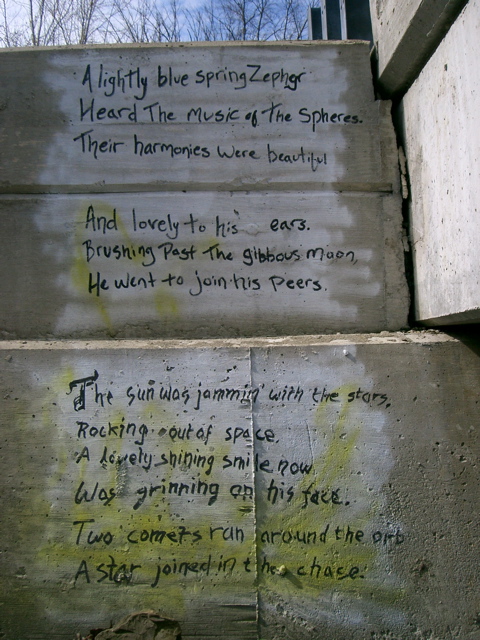 A lightly blue spring Zephyr
Heard The Music of The Spheres.
Their harmonies were beautiful
And lovely to his ears.
Brushing Past The gibbous moon,
He went to join his Peers.
The sun was jammin' with the stars,
Rocking out of space.
A lovely shining smile now
Was grinning on his face.
Two comets ran around the orb
A star joined in the chase.